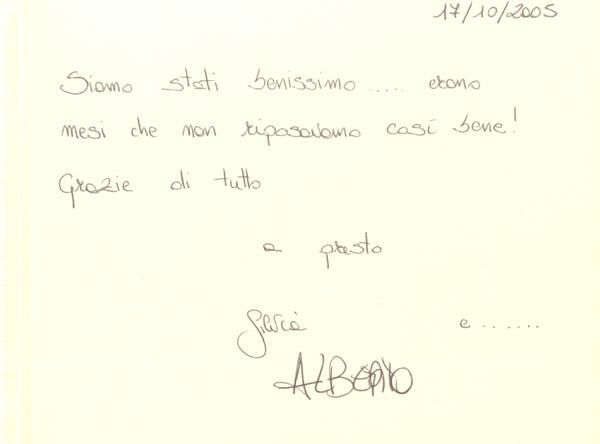 17/10/2005
Siamo stati benissimo ..... erano
mesi che non riposavamo così bene!
Grazie di tutto
a presto
Silvia e .......
ALBERTO